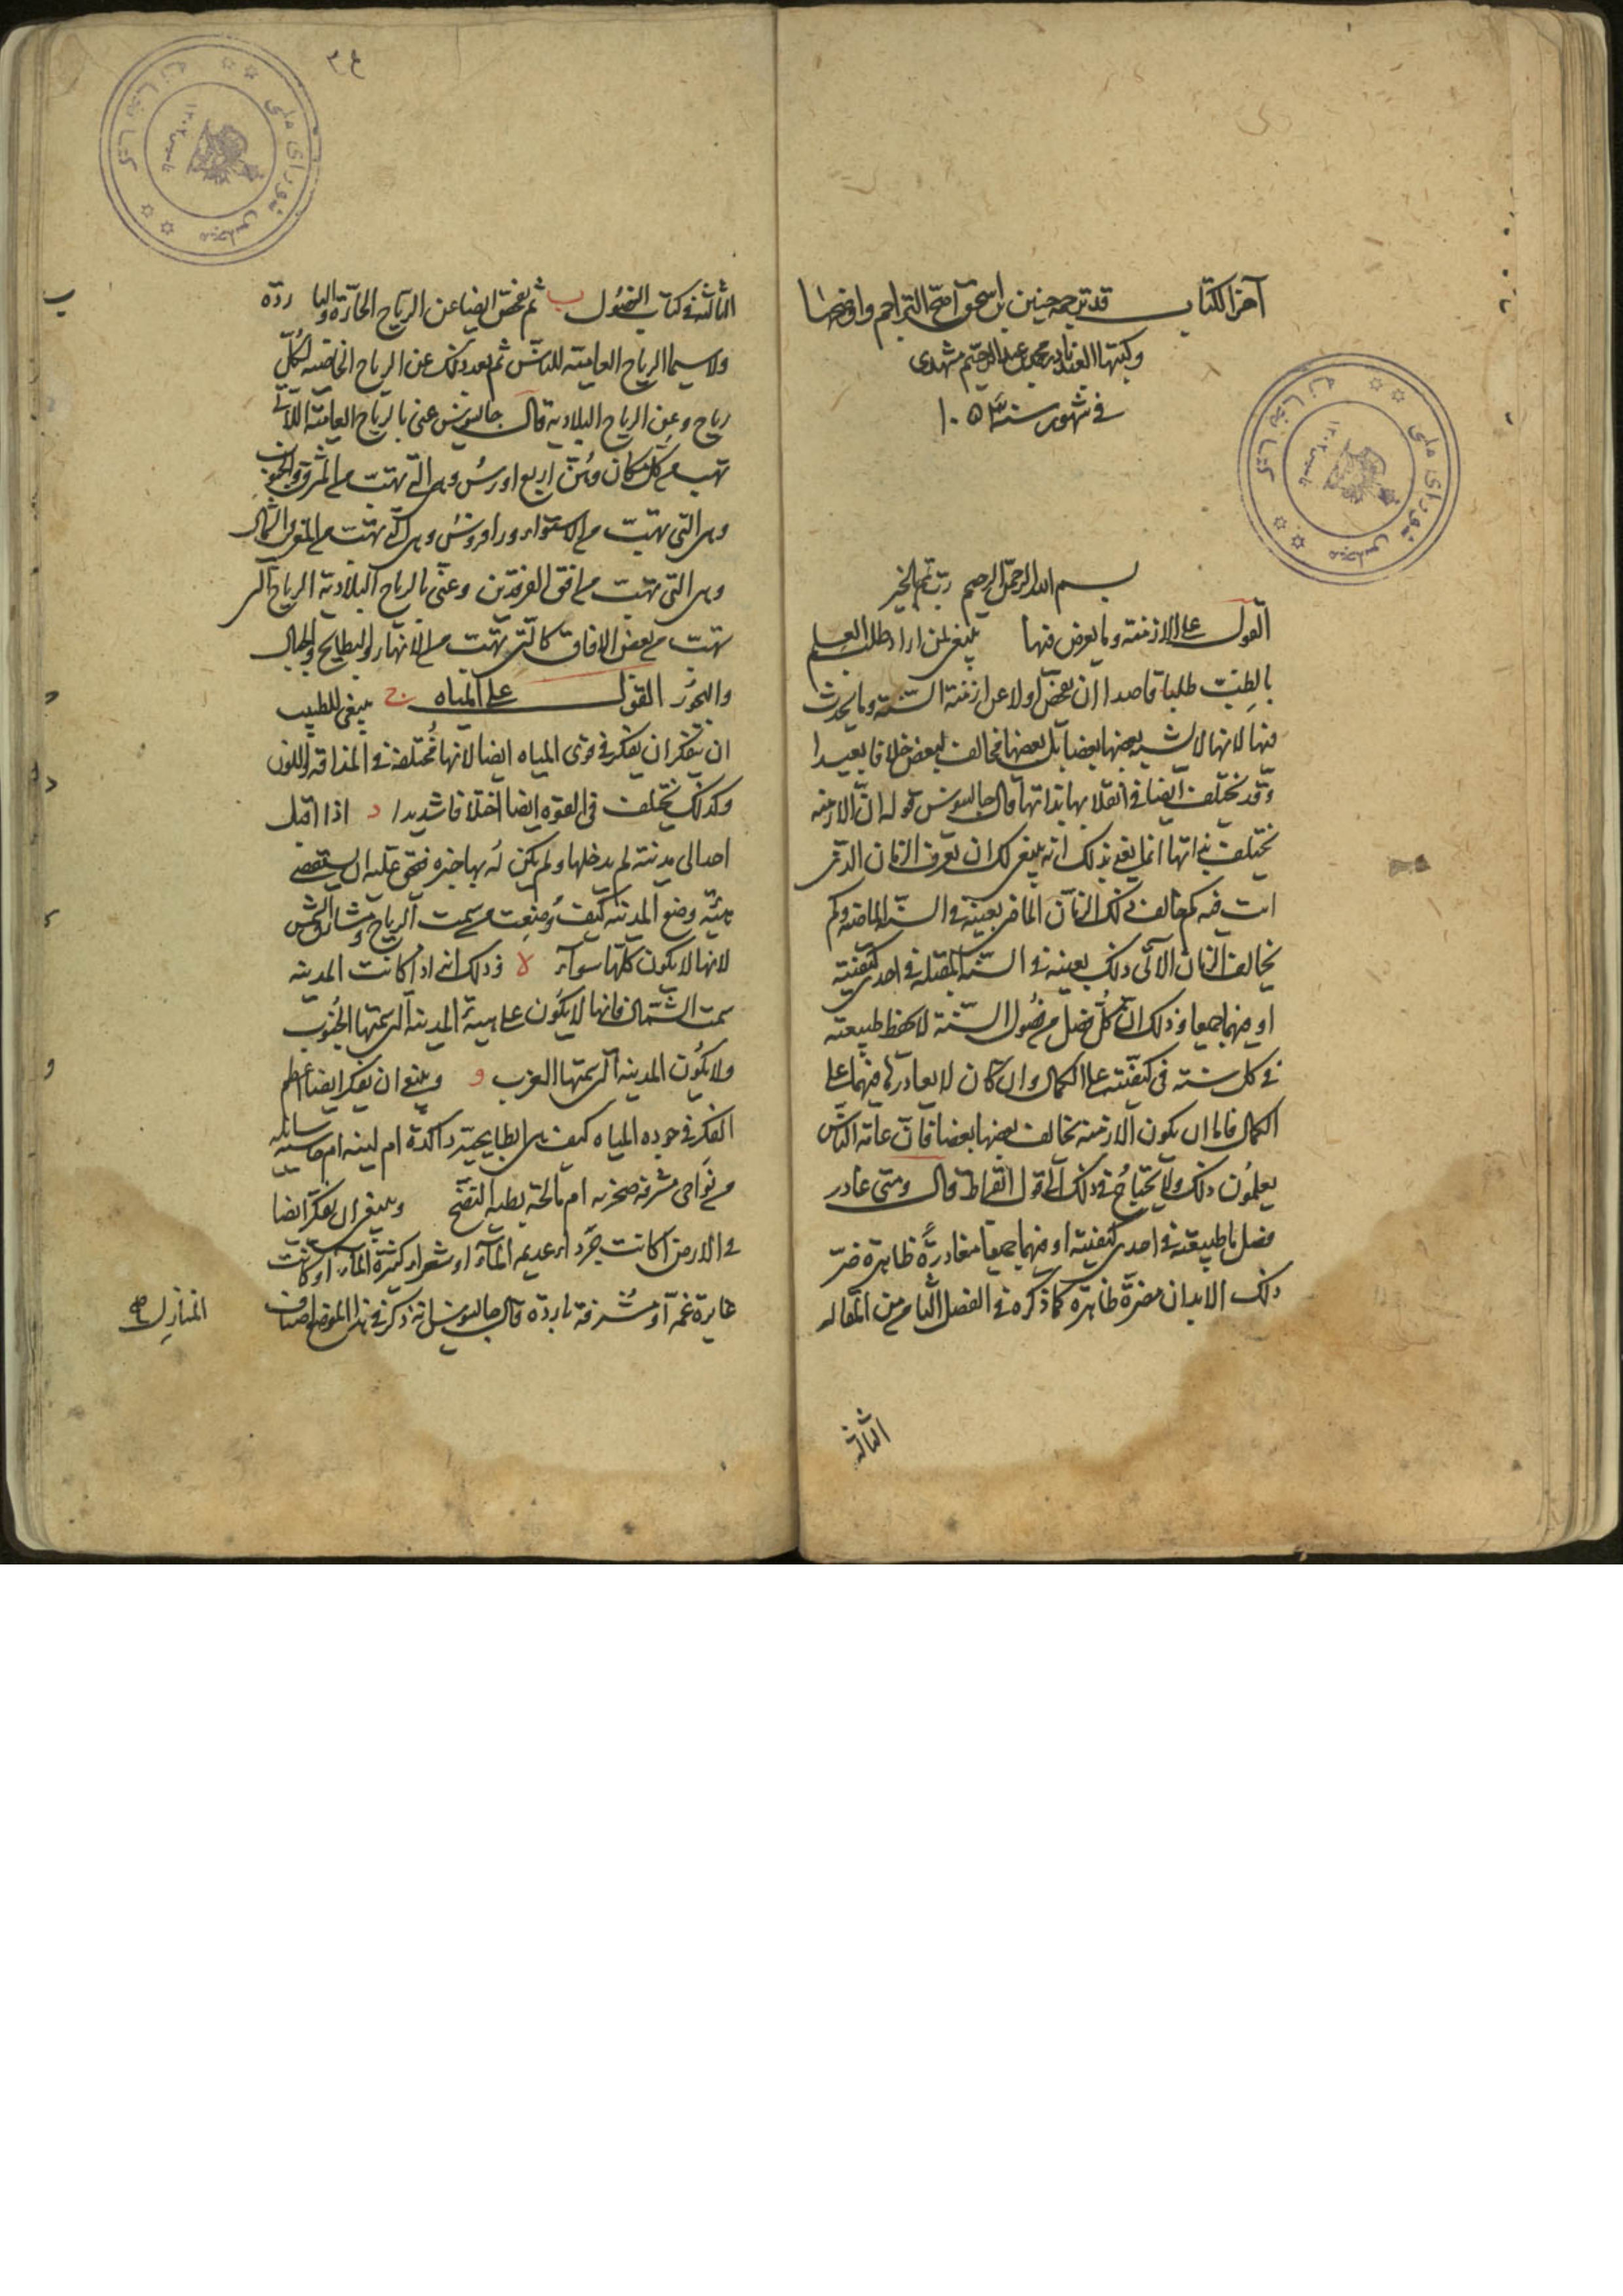 آخر الكتاب قد ترجمه حنين بن اسحق اصح التراجم واوضحها
وكتبها العبد نادر محمد بن عبد الرحيم مشهدى
فى شهور سنة ١٠٥٣
بسم الله الرحمن الرحيم رب تمم بالخير
القول على الازمنة وما يعرض فيها ينبغى لمن اراد طلب العلم
بالطب طلبا قاصدا ان يفحص اولا عن ازمنة السنة وما يحدث
فيها لانها لا يشبه بعضها بعضا بل بعضها مخالف لبعض خلافا بعيدا
وقد يختلف ايضا فى انقلابها بذاتها قال جالينوس قوله ان الازمنه
تختلف بذاتها انما يعنى بذلك انه ينبغى لك ان تعرف الزمان الذى
انت فيه كم خالف ذلك الزمان الماضى بعينه فى السنة الماضيه وكم
يخالف الزمان الآتى ذلك بعينه فى السنة المقبلة فى احدى كيفيتيه
او فيهما جميعا وذلك ان كل فصل من فصول السنة لا يحفظ طبيعته
فى كل سنة فى كيفيته على الكمال وان كان لا يغادرها فيهما على
الكمال فاما ان يكون الازمنه يخالف بعضها بعضا فان عامة الناس
يعلمون ذلك ولا يحتاج فى ذلك الى قول ابقراط قال ومتى غادر
فصل ما طبيعته فى احدى كيفيتيه او فيهما جميعا مغادرة ظاهرة ضر
ذلك الابدان مضرة ظاهرة كما ذكره فى الفصل الثامن من المقاله
الثالثة
الثالثة فى كتاب الفصول ب ثم يفحص ايضا عن الرياح الحارة والباردة
ولا سيما الرياح العامية للناس ثم بعد ذلك عن الرياح الخاصيه لكل
رياح وعن الرياح البلادية قال جالينوس عنى بالرياح العامية اللاتى
تهب من كل مكان وهن اربع اورس وهى التى تهب من المشرق والجنوب
وهى التى تهب من الاستواء وزافروس وهى التى تهب من المغرب والشمال
وهى التى تهب من افق الفرقدين وعنى بالرياح البلادية الرياح التى
تهب من بعض الافاق كالتى تهب من الانهار والبطايح والجبال
والبحور القول على المياه ج ينبغى للطبيب
ان يتفكر ان يفكر فى قوى المياه ايضا لانها مختلفة فى المذاقه واللون
وكذلك تختلف فى القوه ايضا اختلافا شديدا د اذا اقبل
احد الى مدينة لم يدخلها ولم يكن له بها خبره فحق عليه ان يستقصى
هيئة وضع المدينه كيف وضعت من سمت الرياح ومشارق الشمس
لانها لا يكون كلها سواء ه وذلك انه اذا كانت المدينه
سمت الشمال فانها لا يكون على هيئة المدينة التى سمتها الجنوب
ولا يكون المدينه التى سمتها الغرب و وينبغى ان يفكر ايضا اعظم
الفكر فى جوده المياه كيف هى ابطايحية راكدة ام لينه ام جاسيه سائله
من نواحى مشرفه صخريه ام مالحة بطيه النضج وينبغى ان يفكر ايضا
فى الارض اكانت جرداء عديمه الماء او شعراء كثيرة الماء او كانت
غايرة غمة او مشرفة باردة قال جالينوس انه ذكر فى هذا الموضع اصناف
المنازل